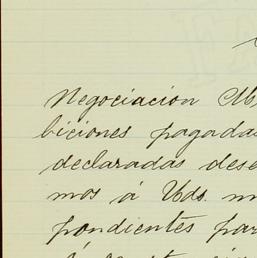 Negociacion
biciones pagadas
declaradas dese
mos á Uds. m
pondientes par